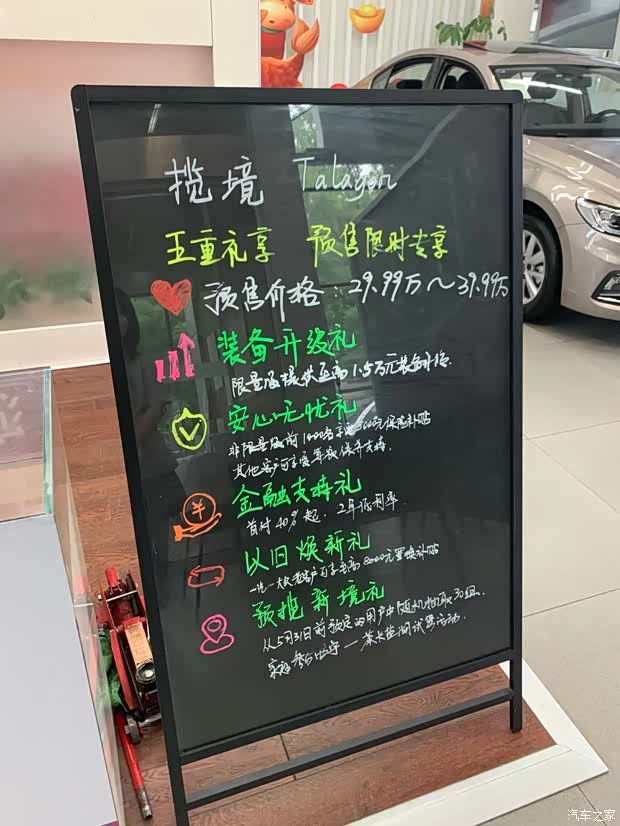 揽境 Talagon
五重礼享 预售限时专享
预售价格：29.99万～39.99万
装备开级礼
限量版提供至高1.5万元装备升级.
安心无忧礼
非限量版前1000名 5000元保险补贴
其他客户可享 保养支持.
金融支持礼
首付40%起，2年低利率.
以旧焕新礼
一汽-大众老客户可享至高8000元置换补贴
预揽新境礼
从5月31日前预定的用户中随机抽取30组.
家庭参与 试驾活动.
汽车之家